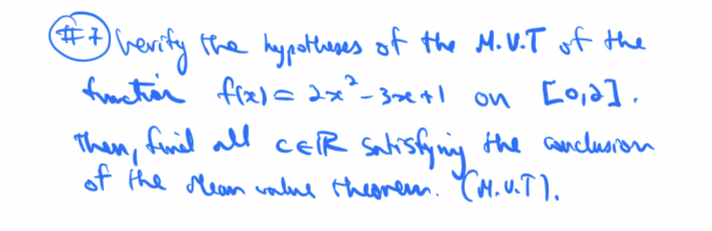 #7 Verify the hypotheses of the M.V.T of the
function f(x) = 2x² - 3x + 1 on [0,2].
Then, find all c∈ℝ satisfying the conclusion
of the Mean value theorem. (M.V.T).